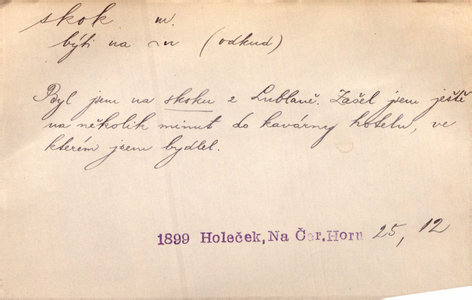 skok m.
býti na ~u (odkud)
Byl jsem na skoku z Lublaně. Zašel jsem ještě
na několik minut do kavárny hotelu, ve
kterém jsem bydlel.
1899 Holeček, Na Čer. Horu 25, 12